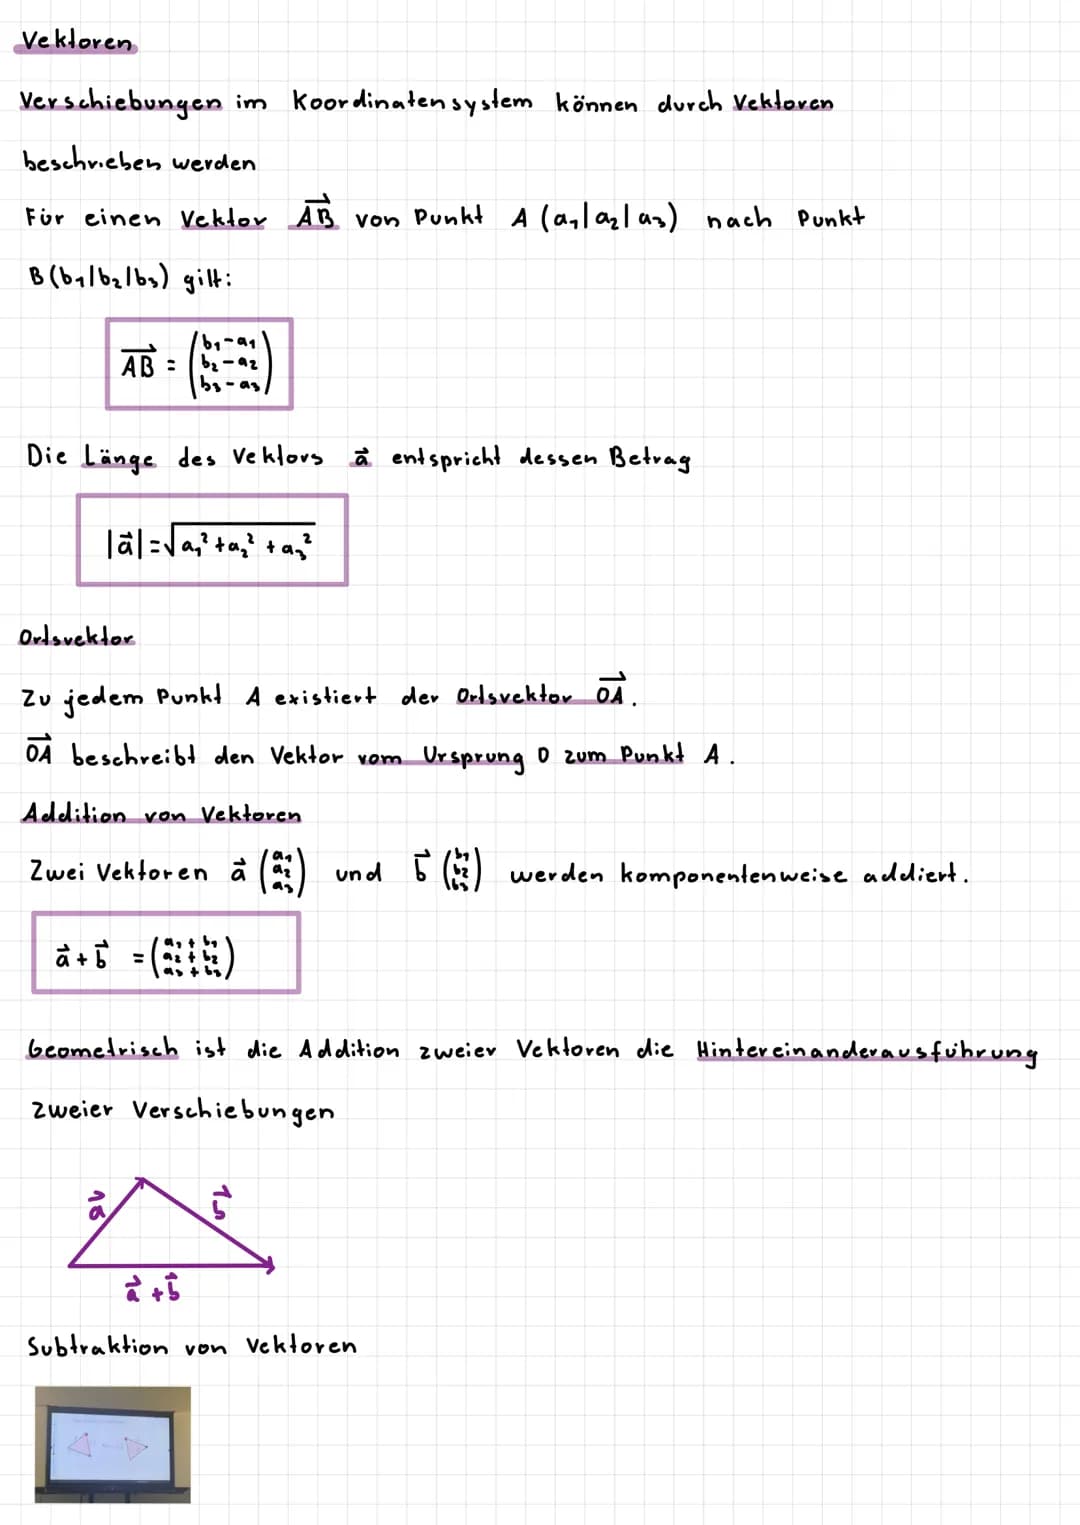 Vektoren
Verschiebungen im Koordinatensystem können durch Vektoren
beschrieben werden
Für einen Vektor \overrightarrow{AB} von Punkt A (a₁|a₂|a₃) nach Punkt
B(b₁|b₂|b₃) gilt:
\overrightarrow{AB} = \begin{pmatrix} b₁-a₁ \\ b₂-a₂ \\ b₃-a₃ \end{pmatrix}
Die Länge des Vektors \vec{a} entspricht dessen Betrag
|\vec{a}| = \sqrt{a₁² + a₂² + a₃²}
Ortsvektor
Zu jedem Punkt A existiert der Ortsvektor \overrightarrow{OA}.
\overrightarrow{OA} beschreibt den Vektor vom Ursprung O zum Punkt A.
Addition von Vektoren
Zwei Vektoren \vec{a} \begin{pmatrix} a₁ \\ a₂ \\ a₃ \end{pmatrix} und \vec{b} \begin{pmatrix} b₁ \\ b₂ \\ b₃ \end{pmatrix} werden komponentenweise addiert.
\vec{a} + \vec{b} = \begin{pmatrix} a₁ + b₁ \\ a₂ + b₂ \\ a₃ + b₃ \end{pmatrix}
Geometrisch ist die Addition zweier Vektoren die Hintereinanderausführung
zweier Verschiebungen
\vec{a}
\vec{b}
\vec{a} + \vec{b}
Subtraktion von Vektoren